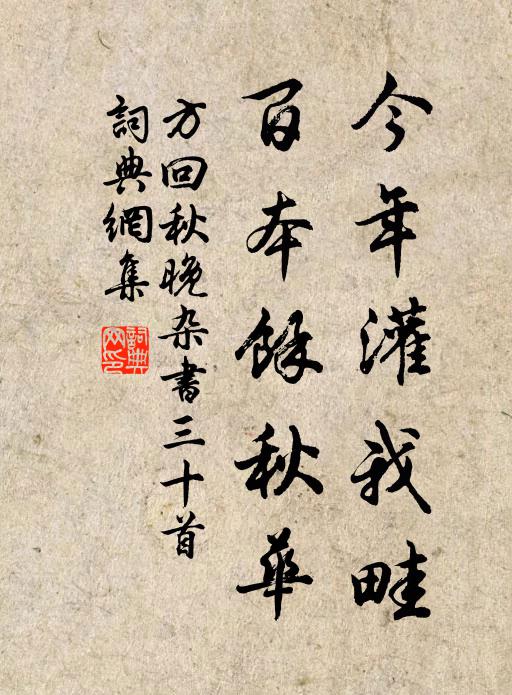 今年灌我畦
百本餘秋華
方回秋晚杂書三十首
詞典網集
詞典網印